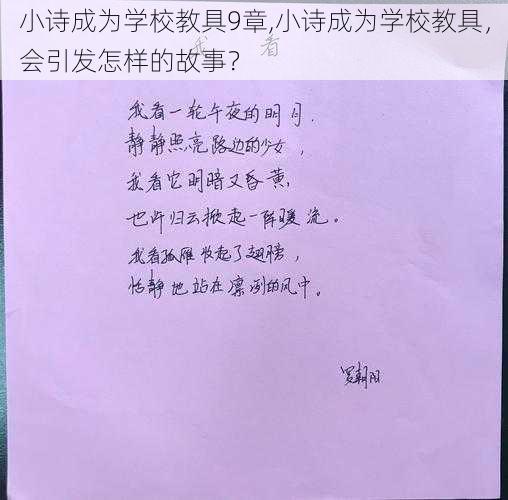 小诗成为学校教具9章,小诗成为学校教具，
会引发怎样的故事？
我 看
我看一轮午夜的明月.
静静照亮路边的少女，
我看它明暗又昏黄,
也许归云掀起一阵暖流。
我看孤雁收起了翅膀，
恬静地站在凛冽的风中。
罗朝阳